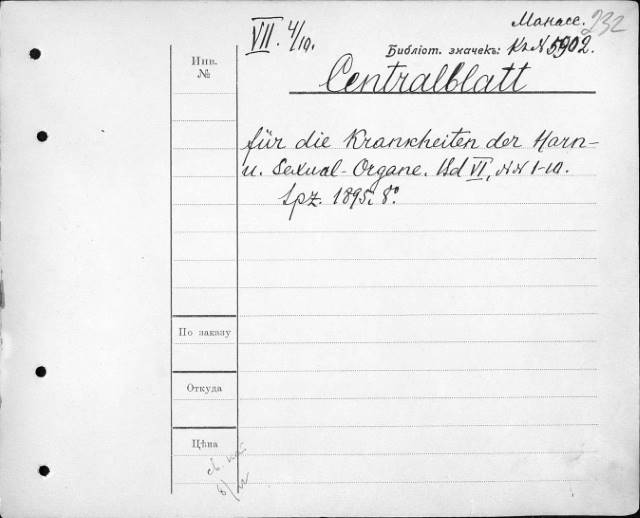 Манасе. 232
VII. 4/10.
Библіот. значекъ: Кз N 5902.
Centralblatt
für die Krankheiten der Harn-
u. Sexual-Organe. Bd VI, NN 1-10.
Lpz. 1895. 8°.
Инв.
№
По заказу
Откуда
Цѣна